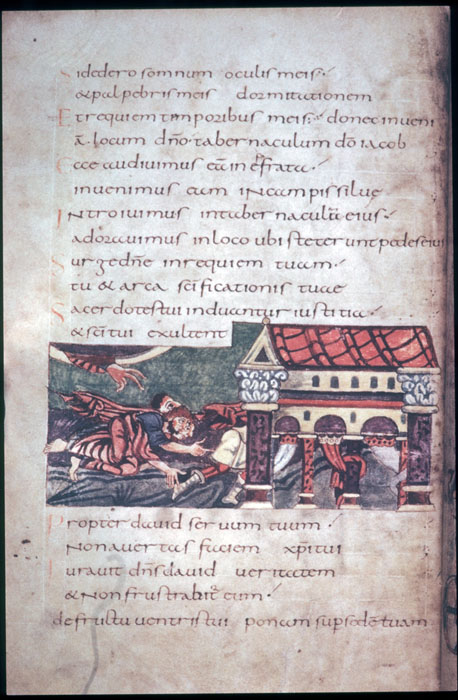 Si dedero somnum oculis meis·
& palpebris meis dormitationem
Et requiem timporibus meis· donec inveni
ā locum dn̄o· tabernaculum dō iacob
Ecce audivimus eā in efrata·
invenimus eam in campis silve
Introivimus in tabernaculū eius·
adoravimus in loco ubi steterunt pedes eius
Surge dn̄e in requiem tuam·
tu & arca sc̄ificationis tuae
Sacerdotes tui induantur iustitia·
& sc̄i tui exultent
Propter david servum tuum·
Non avertas faciem xp̄i tui
Iuravit dn̄s david veritatem
& non frustrabit· eum·
de fructu ventris tui ponam sup sedē tuam